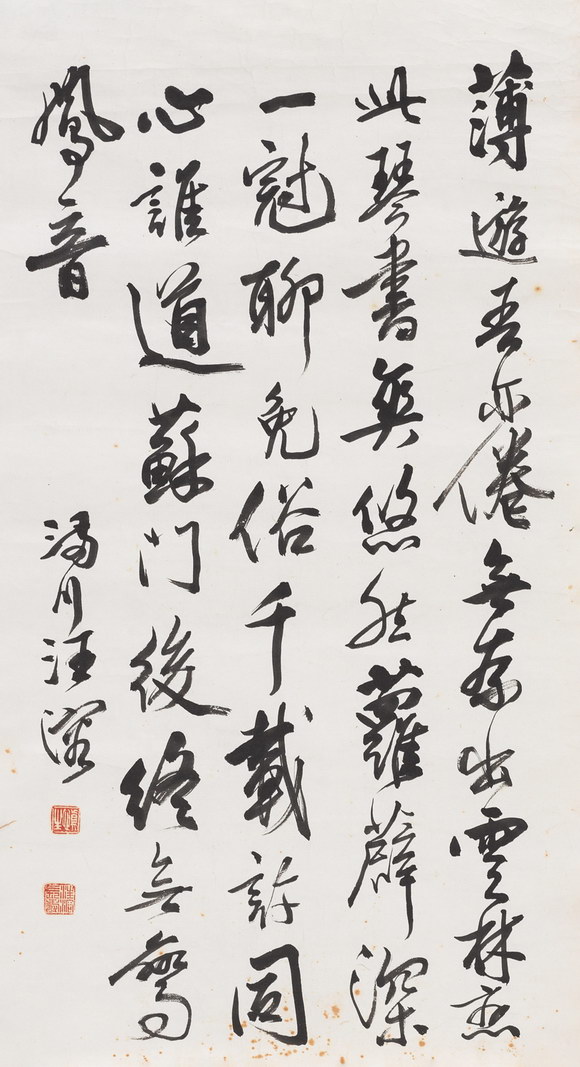 薄遊吾亦倦無奈出雲林恋
此琴書興悠然蘿薜深
一冠聊免俗千載許同
心誰道蘇門後終無鸞
鳳音
滿川汪溶
慎生